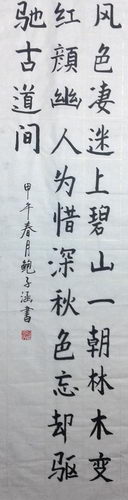 风色凄迷上碧山一朝林木变
红颜幽人为惜深秋色忘却驱
驰古道间
甲午春月鲍子涵书